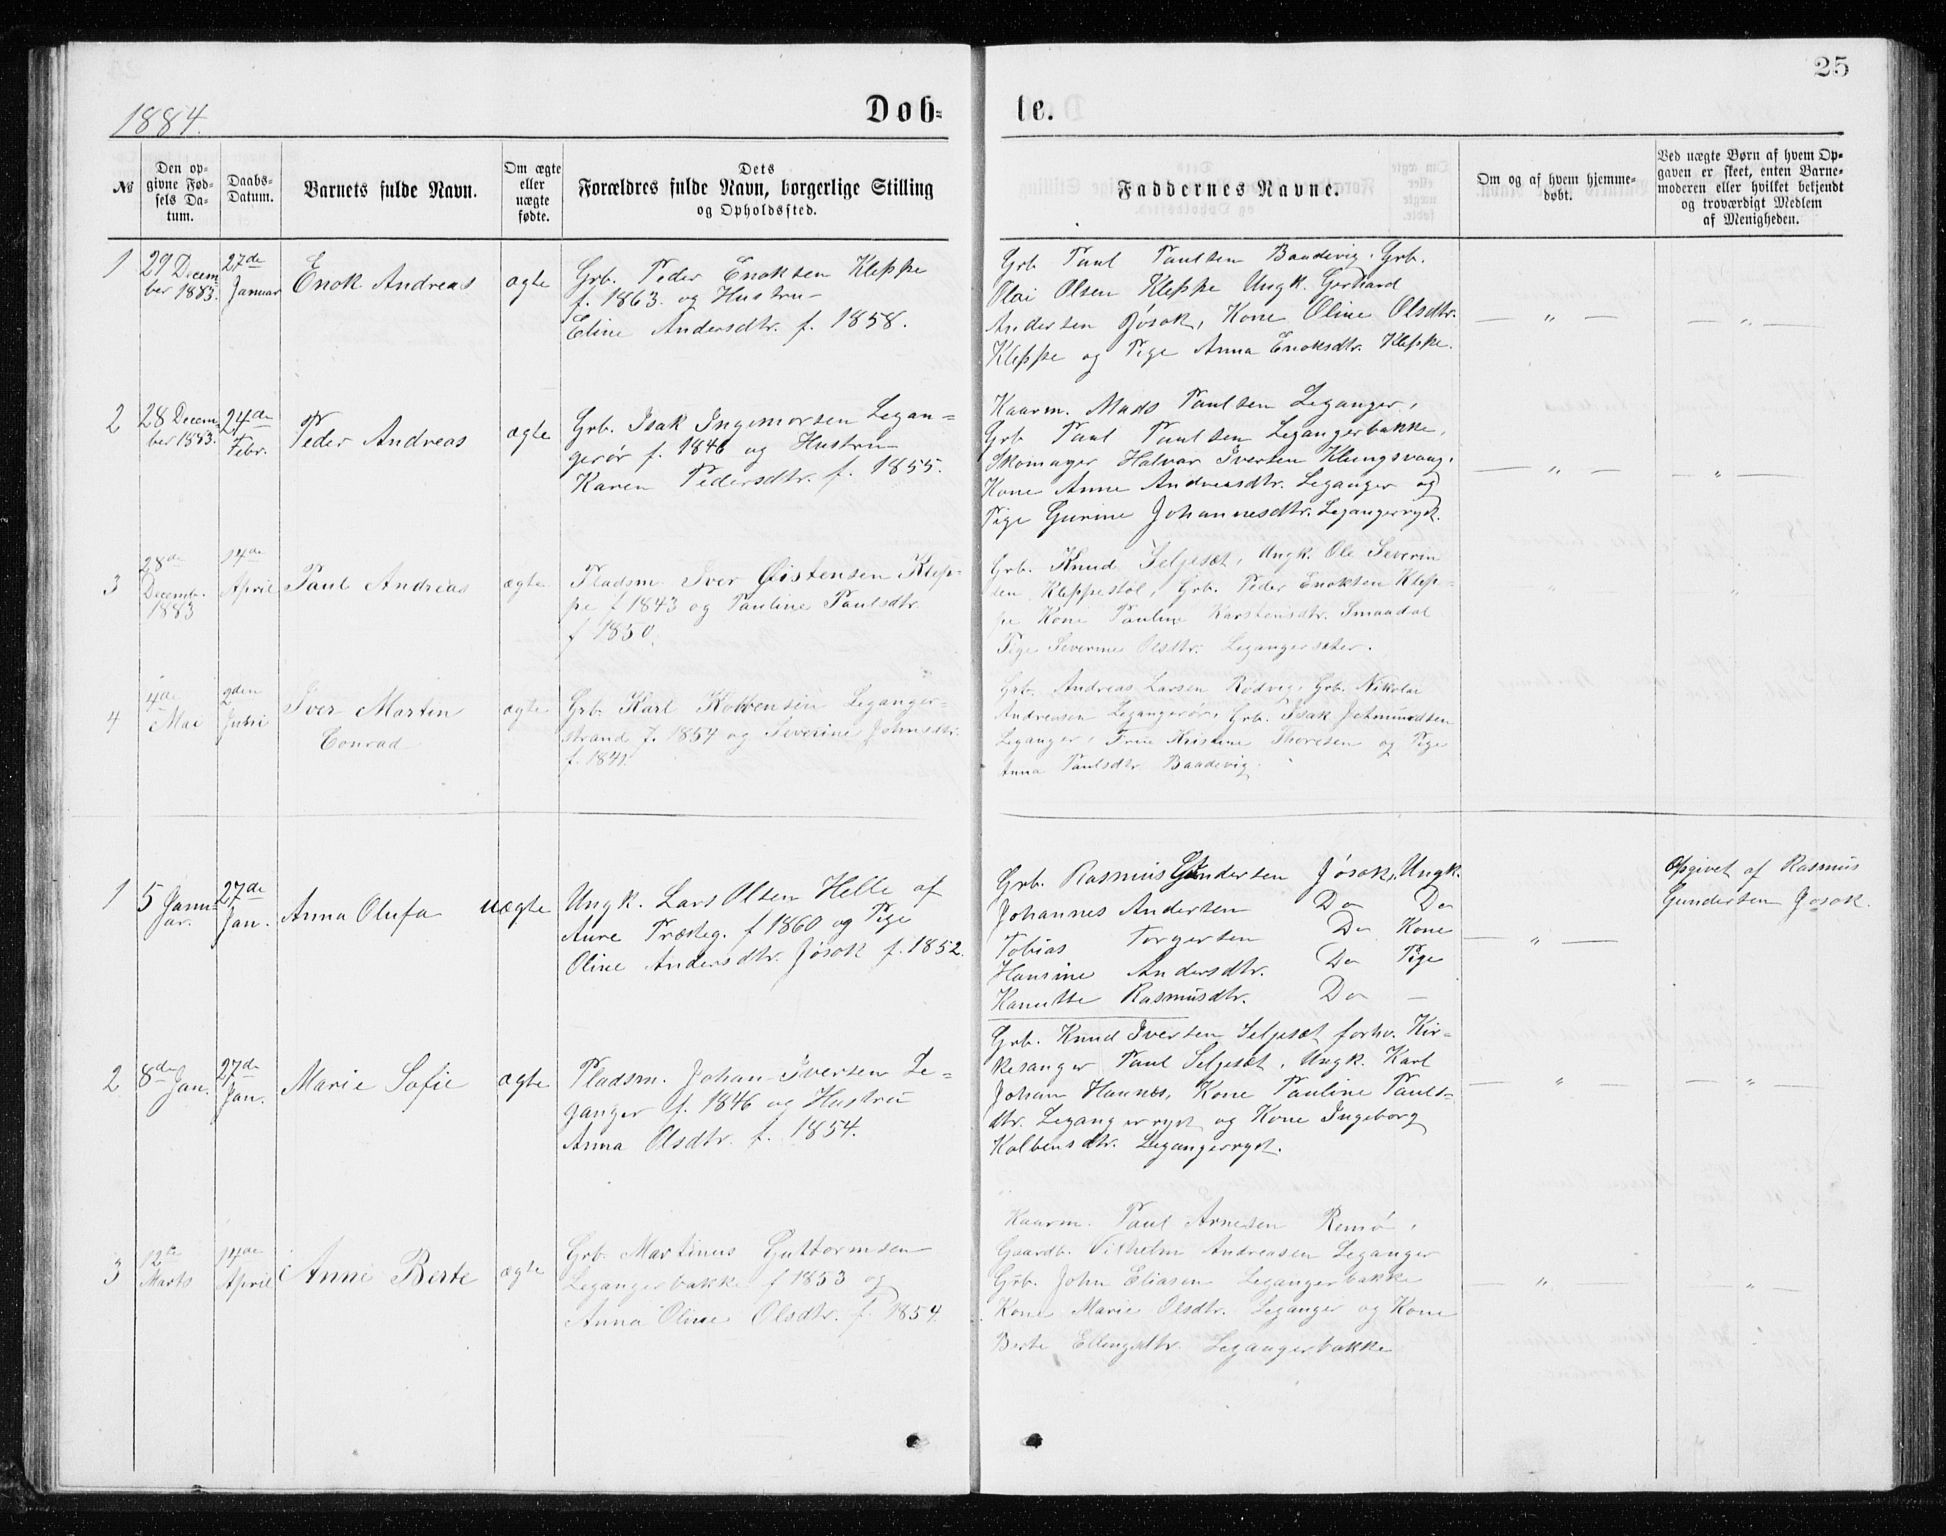 25
1884.
Døb-
te.
№
Den op-
givne Fød-
sels Da-
tum.
Daabs-
Datum.
Barnets fulde Navn.
Om ægte
eller
uægte
fødte.
Dets
Forældres fulde Navn, borgerlige Stilling
og Opholdssted.
Faddernes Navne.
Om og af hvem hjemme-
døbt.
Ved uægte Børn af hvem Op-
gaven er skeet, enten Barne-
moderen eller hvilket bekjendt
og troværdigt Medlem
af Menigheden.
1
29 Decem
ber 1883.
27de
Januar
Enok Andreas
ægte
Grb. Peder Enoksen Kleppe
f. 1863. og Hustru
Eline Andersdtr. f. 1858.
Grb Paul Paulsen Baadivig. Grb.
Olai Olsen Kleppe Ungk. Gerhard
Andersen Jøsok, Kone Oline Olsdtr.
Kleppe og Pige Anna Enoksdtr. Kleppe.
— „ —
— „ —
2
28 Decem
ber 1883.
24de
Febr.
Peder Andreas
ægte
Grb. Isak Ingemorsen Legan-
gerør f. 1846 og Hustru
Karen Pedersdtr. f. 1855.
Kaarm. Mads Paulsen Leganger,
Grb Paul Paulsen Legangerbakke,
Skomager Halvar Iversen Klungsvaag,
Kone Anne Andreasdtr. Leganger og
Pige Gurine Johannesdtr. Legangerryst.
— „ —
— „ —
3
28de
Decemb.
1883
14de
April
Paul Andreas
ægte
Pladsm Iver Øistensen Klep-
pe f 1843 og Pauline Paulsdtr.
f 1850.
Grb. Knud Seljesæt, Ungk. Ole Severin
sen Kleppestøl, Grb. Peder Enoksen Klep-
pe Kone Pauline Karstensdtr. Smaadal
Pige Severine Olsdtr. Legangersæter.
„
„
4
4de
Mai
2den
Juni
Iver Martin
Conrad
ægte
Grb. Karl Kolbensen Leganger-
strand f. 1854 og Severine Johnsdtr.
f. 1841.
Grb. Andreas Larsen Rødvig, Grb. Nikolai
Andreasen Legangerør, Grb. Isak Jetmundsen
Leganger, Frue Kristine Thoresen og Pige
Anna Paulsdtr. Baadevig.
1
5 Janu-
ar.
27de
Jan.
Anna Olufa
uægte
Ungk. Lars Olsen Helle af
Aure Præsteg. f 1860 og Pige
Oline Andersdtr. Jøsok f. 1852.
Grb. Rasmus Gundersen Jøsok, Ungk.
Johannes Andersen Do Do
Tobias Torgersen Do Kone
Hansine Andersdtr. Do Pige
Kanutte Rasmusdtr. Do —
— „ —
Opgivet af Rasmus
Gundersen Jøsok.
2
8de Jan.
27de
Jan.
Marie Sofie
ægte
Pladsm. Johan Iversen Le-
ganger f. 1846 og Hustru
Anna Olsdtr. f. 1854.
Grb. Knud Iversen Seljesæt forhv. Kir-
kesanger Paul Seljesæt, Ungk. Karl
Johan Hannes, Kone Pauline Pauls-
dtr. Legangerryst og Kone Ingeborg
Kolbensdtr. Legangerryst.
— „ —
— „ —
3
12te
Marts
14de
April
Anne Berte
ægte
Grb. Martinus Guttormsen
Legangerbakke f 1853 og
Anna Oline Olsdtr. f. 1854.
Kaarm. Paul Arnesen Remø,
Gaardb. Vilhelm Andreasen Leganger
Grb. John Eliasen Legangerbakke
Kone Marie Olsdtr. Leganger og Kone
Berte Ellingsdtr. Legangerbakke
— „ —
— „ —